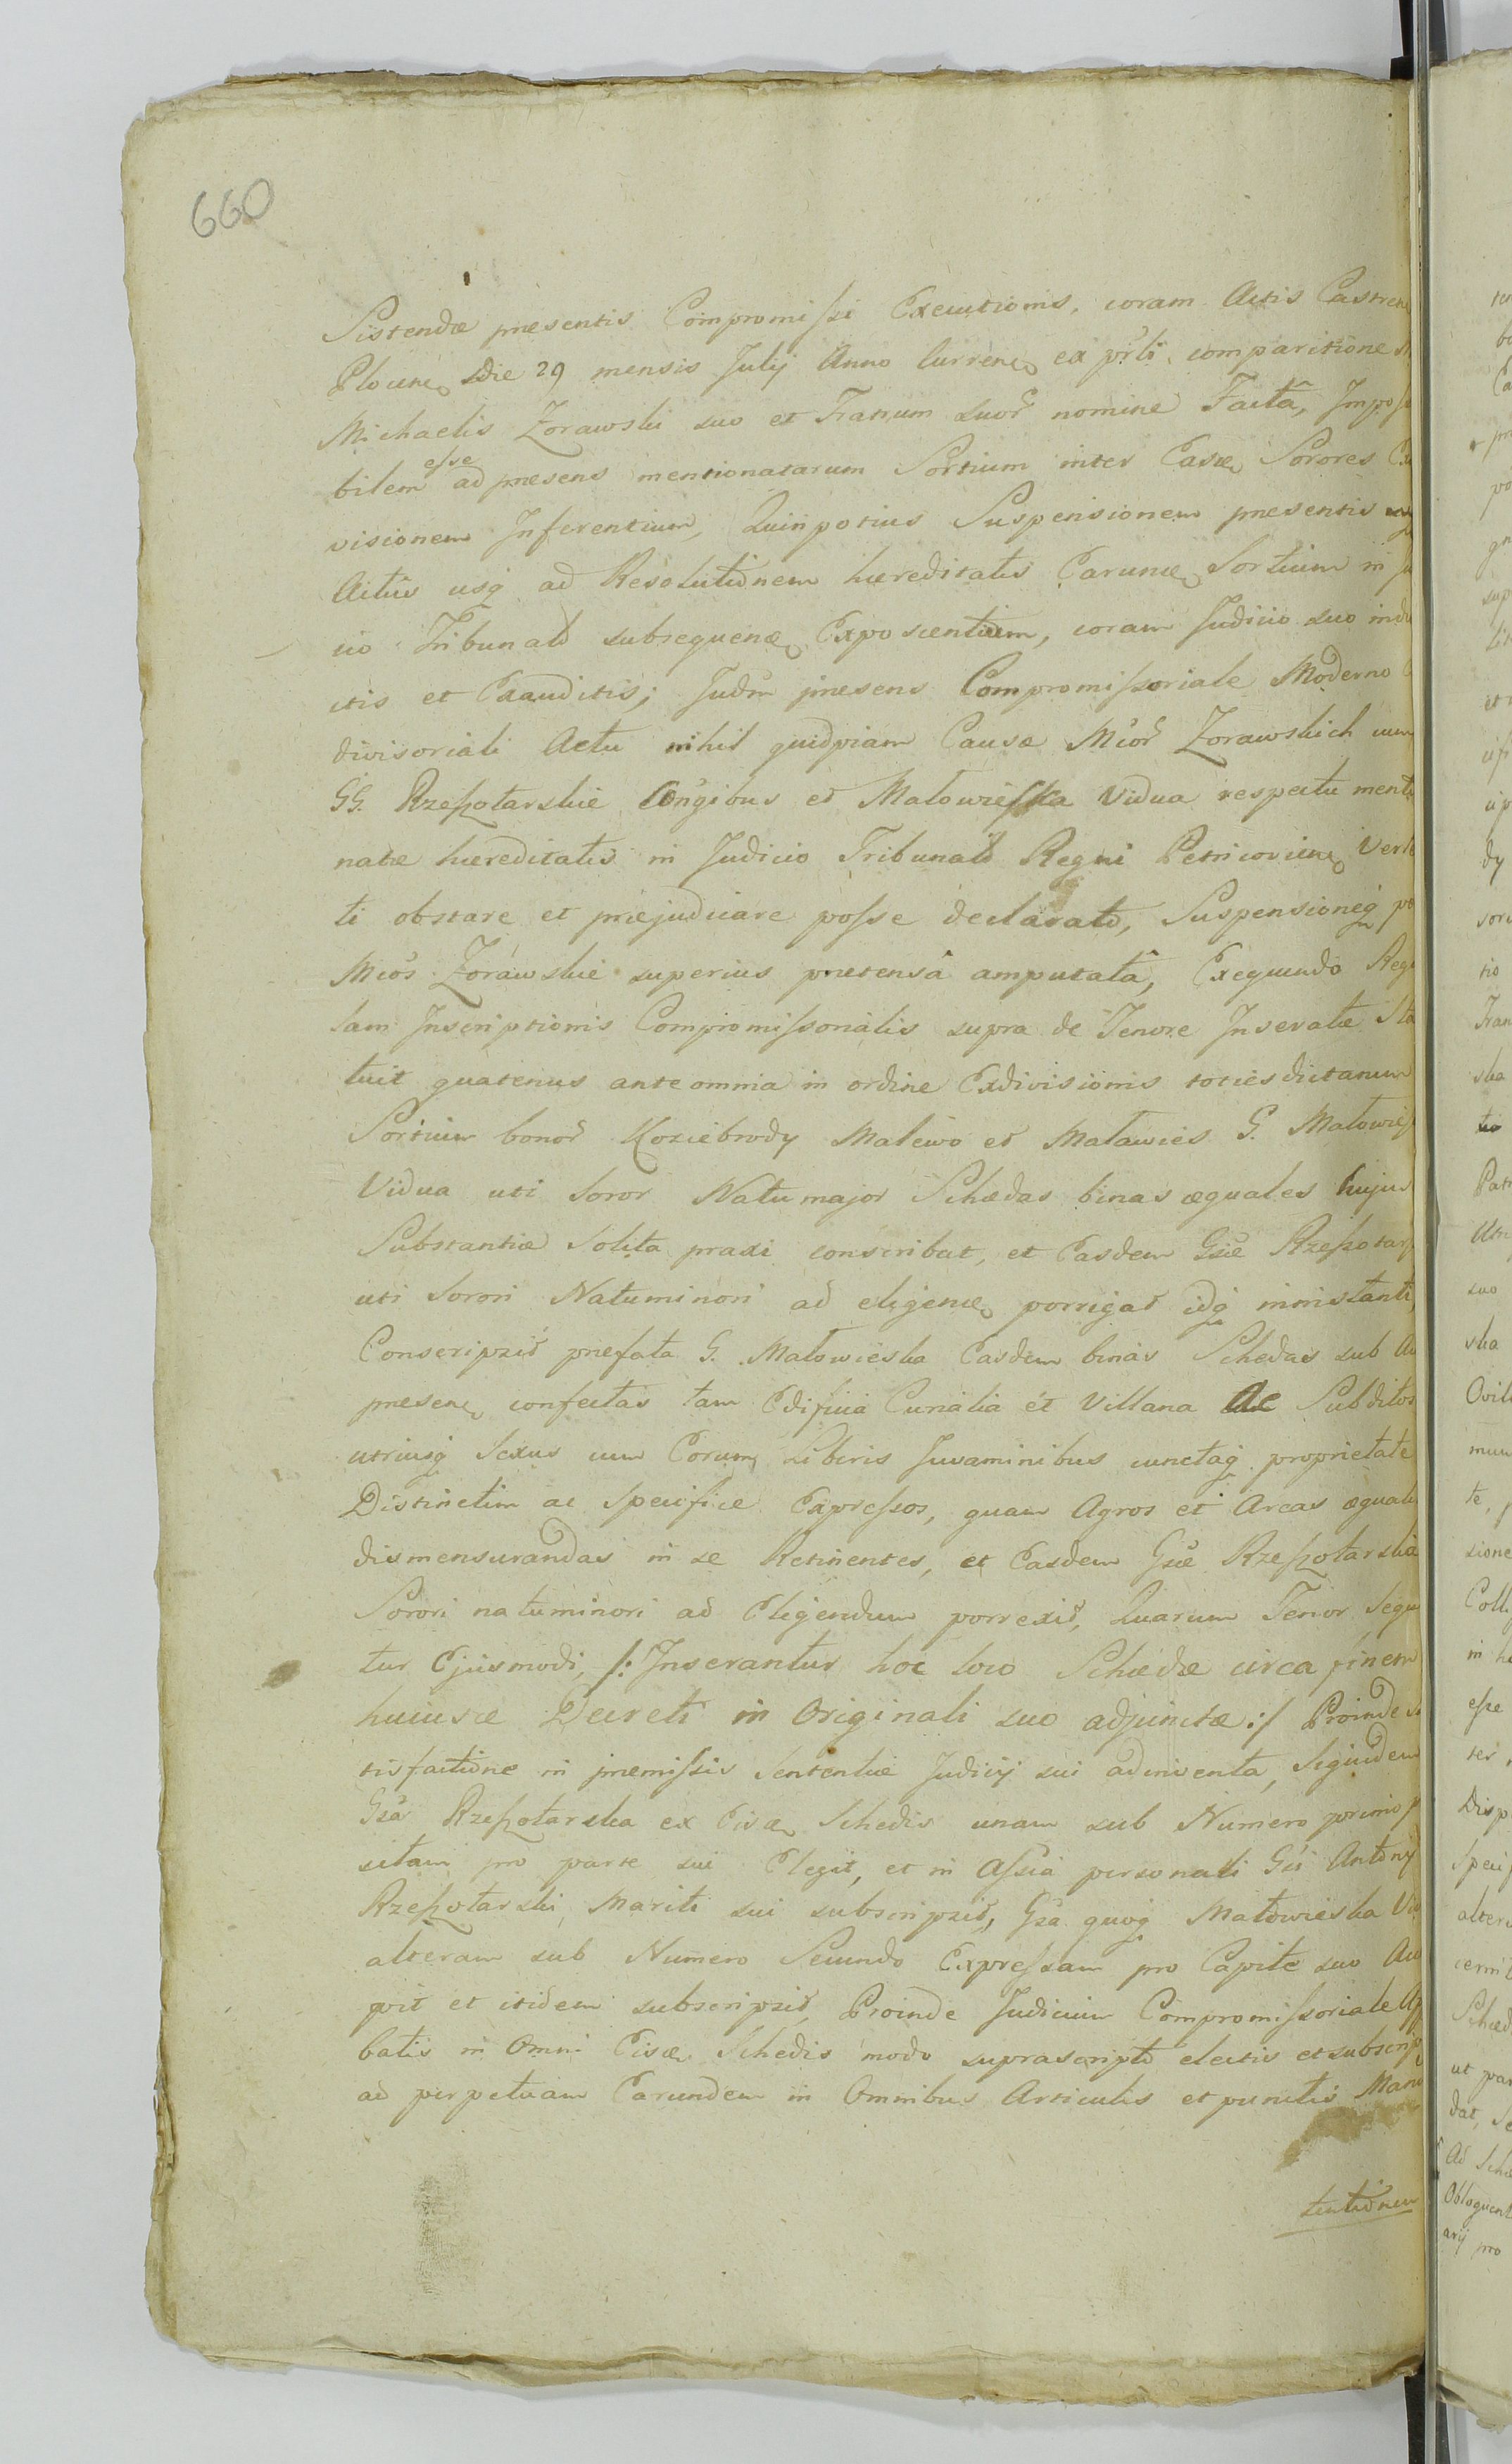 660
Sistendæ præsentis Compromissi Executionis, coram Actis Castren
Plocen, Die 29 mensis Julij Anno Curren, ex prlí comparitione
Michaelis Zorawski suo et Fratrum Suor nomine Factâ, Imposs
bilem esse ad præsens mentionatarum Sortium inter Easce Sorores Ex
visionem Inferentium, Quinpotius Suspensionem præsentis
Actûs usq ad Resolutionem hæreditatis Earume Sortium in Ju
cio Tribunali subsequen Exposcentium, coram Judicio suo indu
ctis et Exauditis; Judm præsens Compromissoriale Moderno
divisoriali Actu nihil quidpiam Causæ Mcor Zorawskich cum
GG. Rzeszotarskie Congibus et Małowieska Vidua respectu menti
natæ hæreditatis in Judicio Tribunali Regni Petricovien, Verte
ti obstare et præjudicare posse declarato, Suspensioneq pe
Mcos Zorawskie superius prætensâ amputatâ, Exequendo Regu
lam Inscriptionis Compromissorialis supra de Tenore Insertæ Sta
tuit quatenus ante omnia in ordine Exdivisionis totiesdictarum
Sortium bonor Koziebrody Malewo et Maławies G. Małowies
Vidua uti Soror Natu major Schædas binas æquales hujus
Substantiæ Solita praxi conscribat, et Easdem Gsæ Rzeszotars
uti Sorori Natuminori ad eligen, porrigat idq ininstanti,
Conscripsit præfata G. Małowieska Easdem binas Schedas sub Ac
præsen, confectas tam Edificia Curialia et Villana Ac Subditos
utriusq Sexus cum Eorum, Liberis Juvaminibus cunctaq proprietate
Distinctim ac specifice Expressos, quam Agros et Areas æquali
dismensurandas in se Retinentes, et Easdem Gsæ Rzeszotarska
Sorori natuminori ad Eligendum porrexit, Quarum Tenor Sequi
tur Ejusmodi, /: Inserantur hoc loco Schædæ circa finem
huiusce Decreti in Originali suo adjunctæ :/ Proinde sa
tisfactione in præmissis Sententiæ Judicij sui adinventa, Siquidem
Gsa Rzeszotarska ex Eisce Schedis unam sub Numero primo p
sitam pro parte sui Elegit, et in Assia personali Gsi Antonij
Rzeszotarski, Mariti sui subscripsit, Gsa quoq Małowieska Vi
alteram sub Numero Secundo Expressam pro Capite suo Acc
pit et itidem subscripsit, Proinde Judicium Compromissoriale App
batis in Omni Eisce Schedis modo suprascripto electis et subscrip
ad perpetuam Earundem in Omnibus Articulis et punctis Manu
tentionem